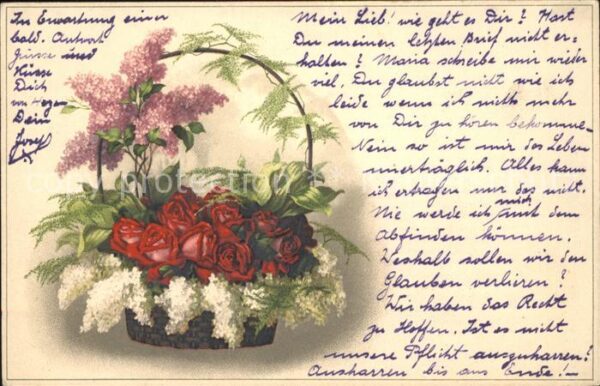 Mein Lieb! wie geht es Dir? Hast
Du meinen letzten Brief nicht er-
halten? Maria schreibe mir wieder
viel. Du glaubst nicht wie ich
leide wenn ich nichts mehr
von Dir zu hören bekomme.
Nein so ist mir das Leben
unerträglich. Alles kann
ich ertragen nur das nicht.
Nie werde ich mich mit dem
Abfinden können.
Weshalb sollen wir den
Glauben verlieren?
Wir haben das Recht
zu Hoffen. Ist es nicht
unsere Pflicht auszuharren?
Ausharren bis ans Ende! –
In Erwartung einer
bald. Antwort
grüsse und
Küsse
Dich
von Herzen
Dein
Josef